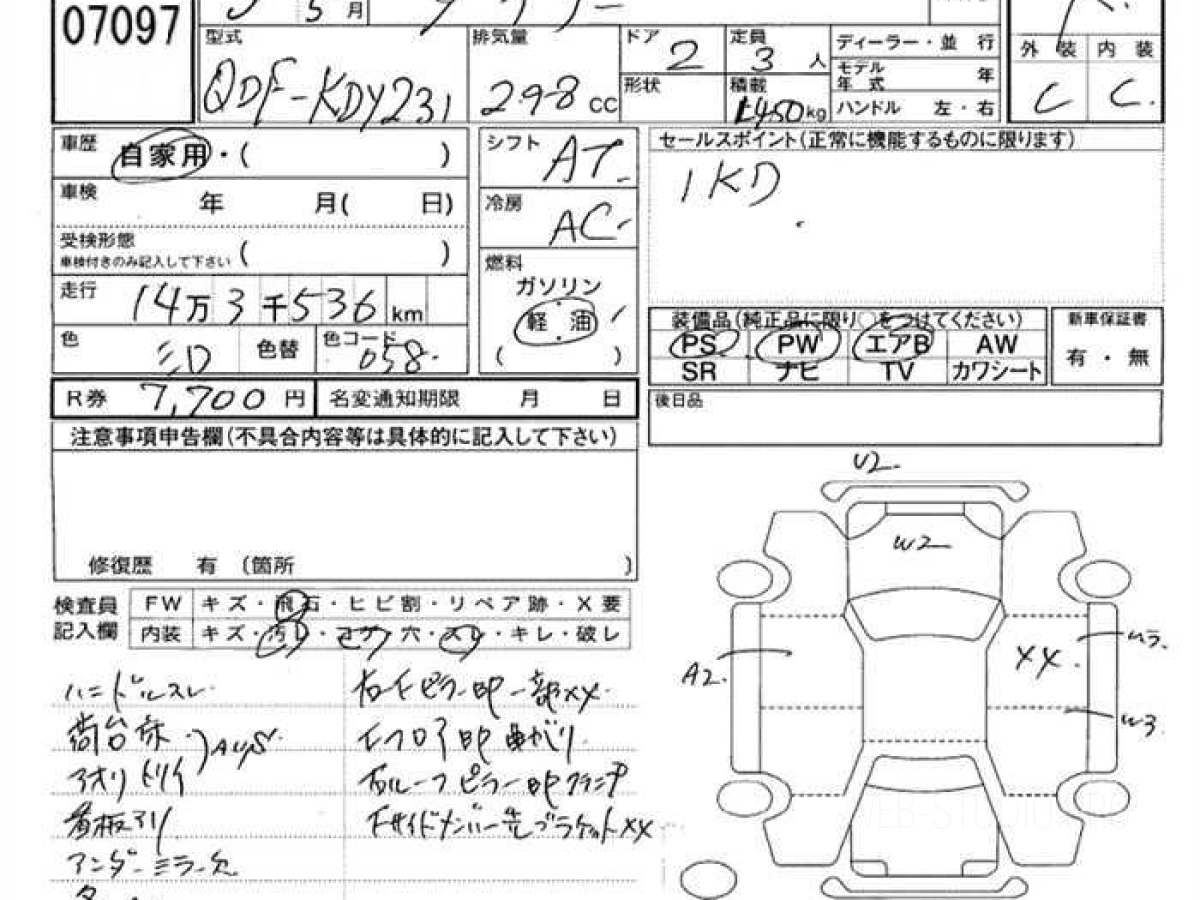 07097
5 月
型式 QDF-KDY231
排気量 2.98 cc
ドア 2
定員 3 人
形状
積載 1,450 kg
ディーラー・並 行
モデル年 式 年
ハンドル 左・右
外 装 内 装
C C.
車歴 自家用・( )
車検 年 月( 日)
受検形態 ( )
車検付きのみ記入して下さい
走行 14万3千536km
色 色替 色コード 058.
シフト AT
冷房 AC
燃料
ガソリン
軽 油
( )
セールスポイント(正常に機能するものに限ります)
1KD
装備品(純正品に限り○をつけてください)
PS PW エアB AW
SR ナビ TV カワシート
新車保証書
有・無
後日品
R券 7,700 円 名変通知期限 月 日
注意事項申告欄(不具合内容等は具体的に記入して下さい)
修復歴 有 〔箇所 〕
検査員記入欄
FW キズ・飛石・ヒビ割・リペア跡・X要
内装 キズ・汚レ・コゲ穴・スレ・キレ・破レ
ハンドルスレ
荷台床
アオリ
看板アリ
アンダーミラー欠
右 ピラー 一部XX
フロア 曲がり
右ルーフ ピラー
サイドメンバー先ブラケットXX
U2
W2
A2
XX
U3
W3